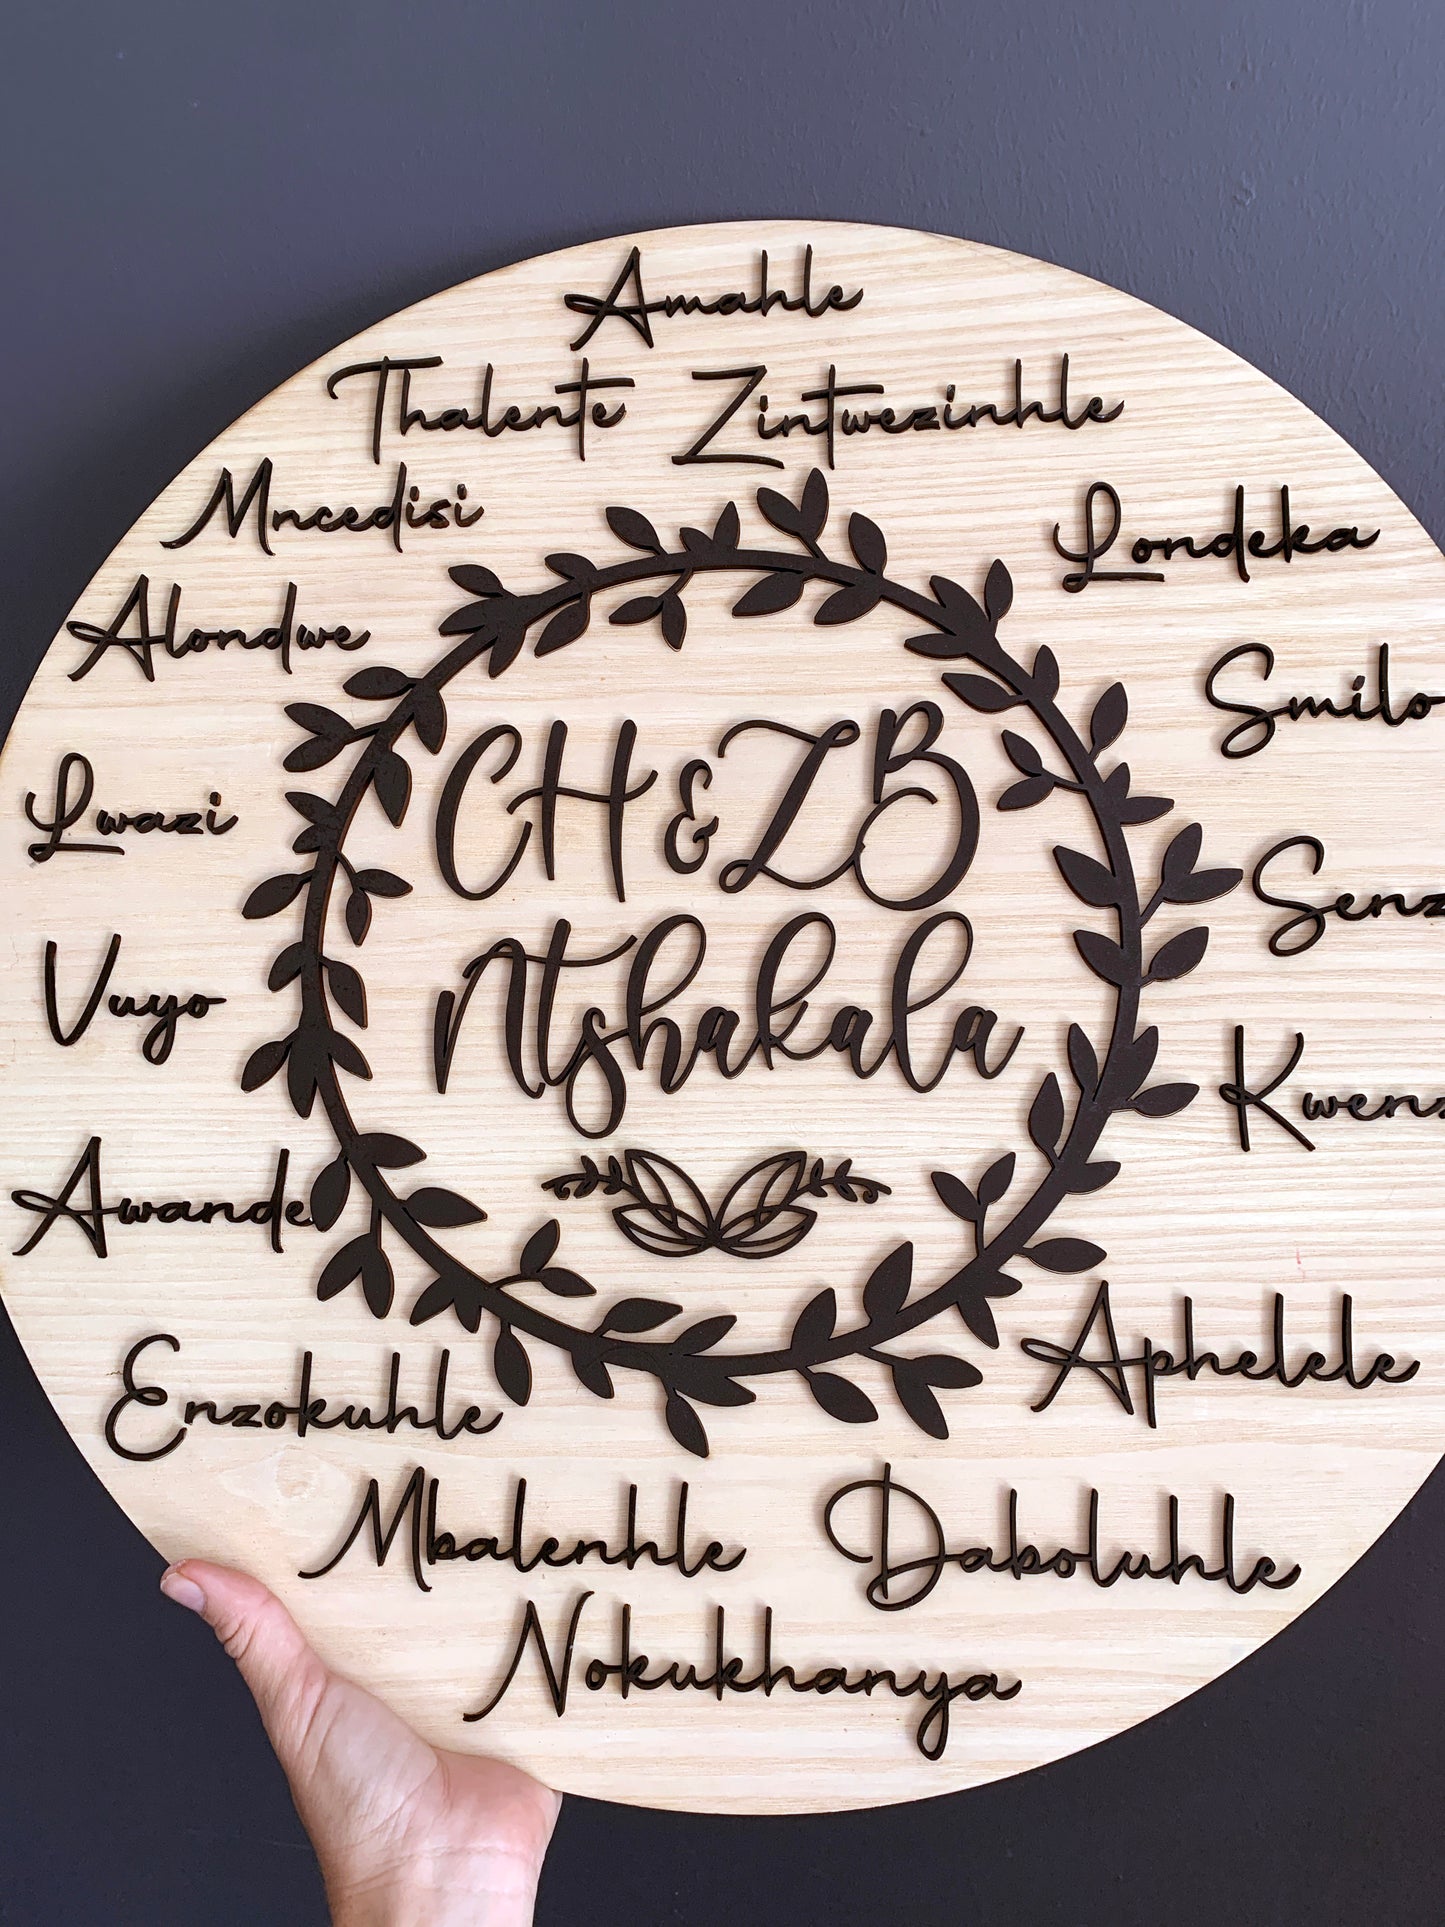 Amahle
Thalente Zintwezinhle
Mncedisi
Londeka
Alondwe
Smilo
Lwazi
CH & ZB
Ntshakala
Vuyo
Awande
Aphelele
Enzokuhle
Mbalenhle Daboluhle
Nokukhanya